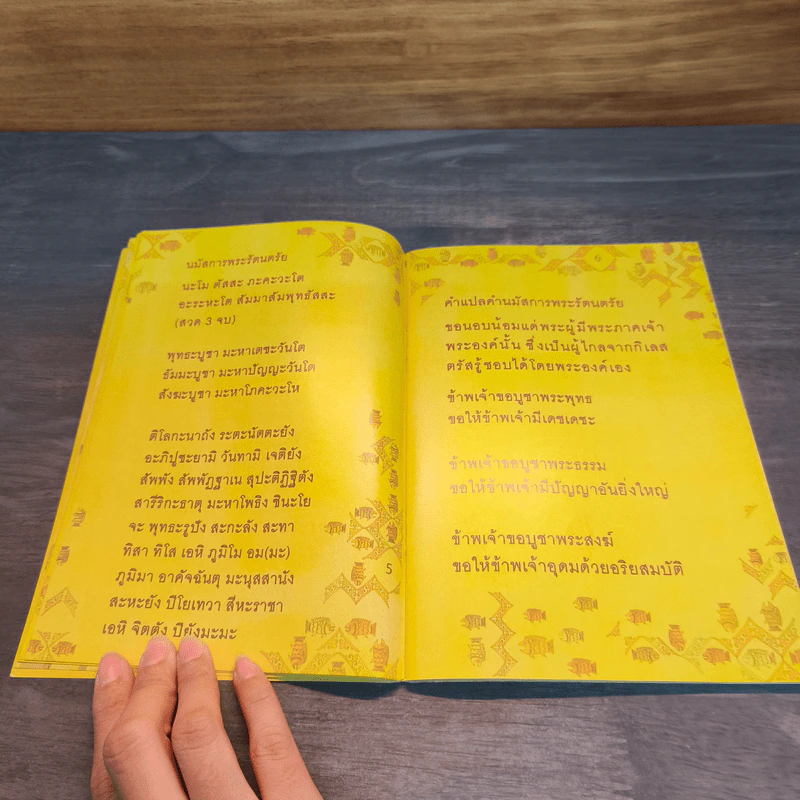 นมัสการพระรัตนตรัย
นะโม ตัสสะ ภะคะวะโต
อะระหะโต สัมมาสัมพุทธัสสะ
(สวด 3 จบ)
พุทธะบูชา มะหาเตชะวันโต
ธัมมะบูชา มะหาปัญญะวันโต
สังฆะบูชา มะหาโภคะวะโห
ติโลกะนาถัง ระตะนัตตะยัง
อะภิปูชะยามิ วันทามิ เจติยัง
สัพพัง สัพพัฏฐาเน สุปะติฏิฐิตัง
สารีริกะธาตุ มะหาโพธิง ชินะโย
จะ พุทธะรูปัง สะกะลัง สะทา
ทิสา ทิโส เอหิ ภูมิโม อม(มะ)
ภูมิมา อาคัจฉันตุ มะนุสสานัง
สะหะยัง ปิโยเทวา สีหะราชา
เอหิ จิตตัง ปิยังมะมะ
5
6
คำแปลคำนมัสการพระรัตนตรัย
ขอนอบน้อมแด่พระผู้มีพระภาคเจ้า
พระองค์นั้น ซึ่งเป็นผู้ไกลจากกิเลส
ตรัสรู้ชอบได้โดยพระองค์เอง
ข้าพเจ้าขอบูชาพระพุทธ
ขอให้ข้าพเจ้ามีเดชเดชะ
ข้าพเจ้าขอบูชาพระธรรม
ขอให้ข้าพเจ้ามีปัญญาอันยิ่งใหญ่
ข้าพเจ้าขอบูชาพระสงฆ์
ขอให้ข้าพเจ้าอุดมด้วยอริยสมบัติ